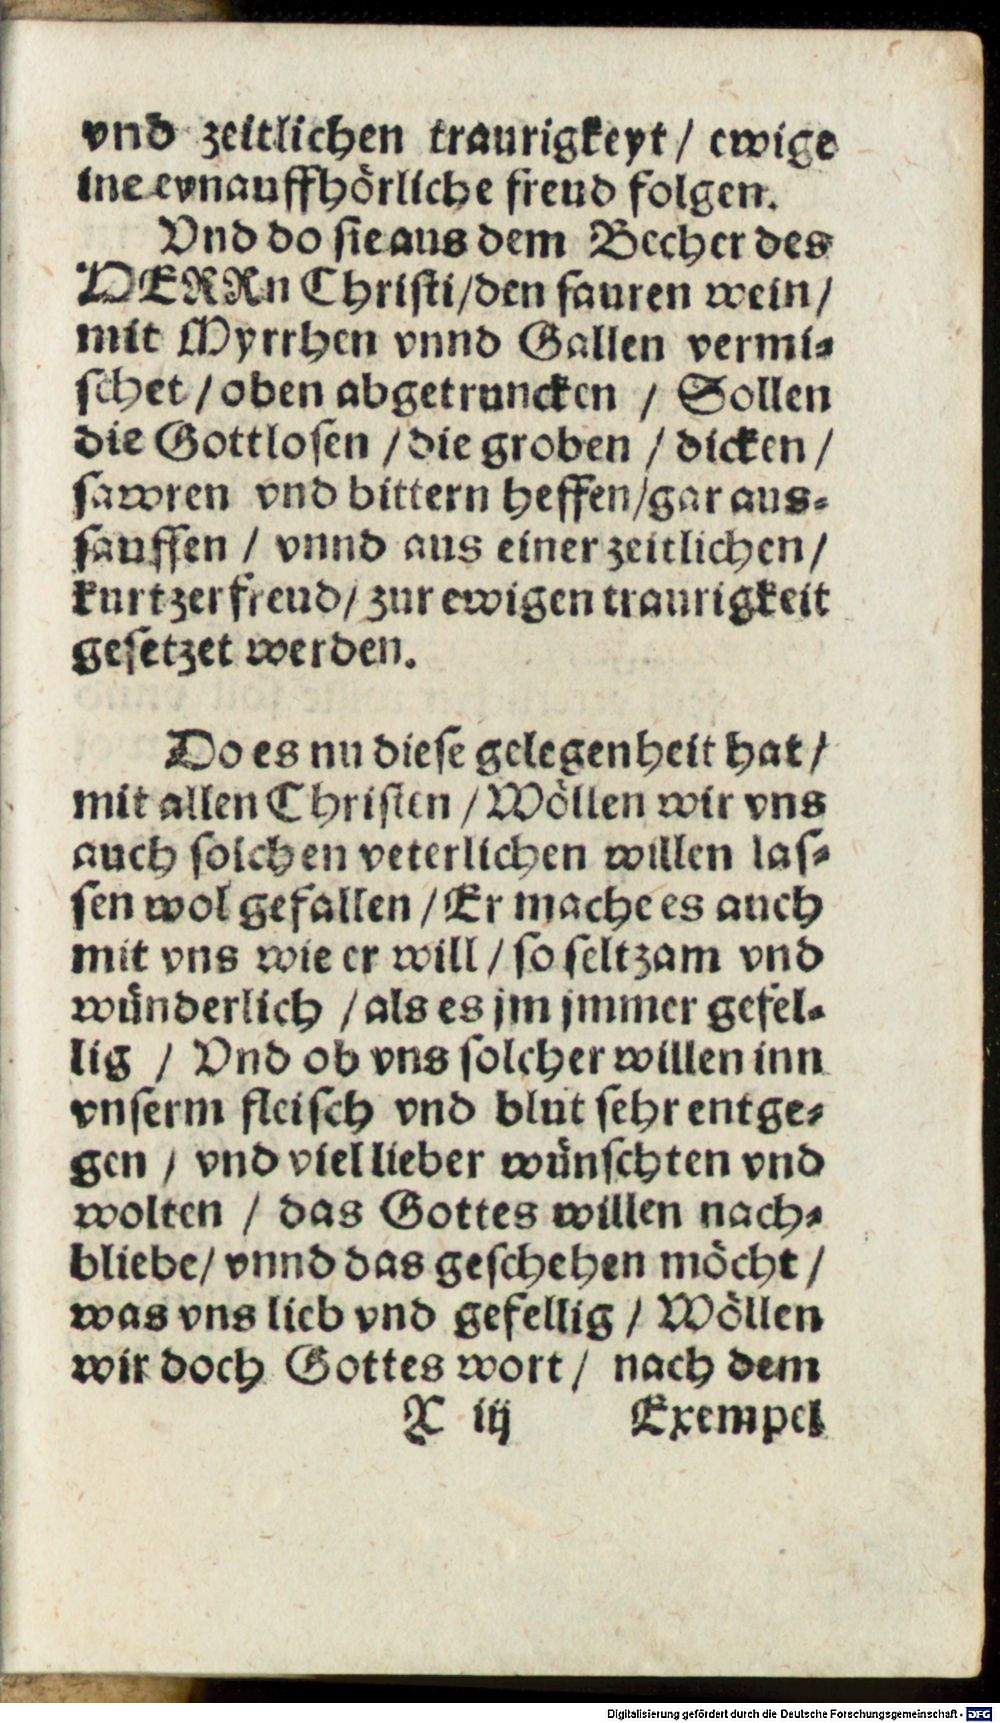 vnd zeitlichen traurigkeyt / ewige
ine evnauffhörliche freud folgen.
Vnd do sie aus dem Becher des
HERRn Christi / den sauren wein /
mit Myrrhen vnnd Gallen vermi-
schet / oben abgetruncken / Sollen
die Gottlosen / die groben / dicken /
sawren vnd bittern heffen / gar aus-
sauffen / vnnd aus einer zeitlichen /
kurtzer freud / zur ewigen traurigkeit
gesetzet werden.
Do es nu diese gelegenheit hat /
mit allen Christen / Wöllen wir vns
auch solchen veterlichen willen las-
sen wol gefallen / Er mache es auch
mit vns wie er will / so seltzam vnd
wünderlich / als es jm jmmer gefel-
lig / Vnd ob vns solcher willen inn
vnserm fleisch vnd blut sehr entge-
gen / vnd viel lieber wünschten vnd
wolten / das Gottes willen nach-
bliebe / vnnd das geschehen möcht /
was vns lieb vnd gefellig / Wöllen
wir doch Gottes wort / nach dem
X iij Exempel
Digitalisierung gefördert durch die Deutsche Forschungsgemeinschaft - DFG